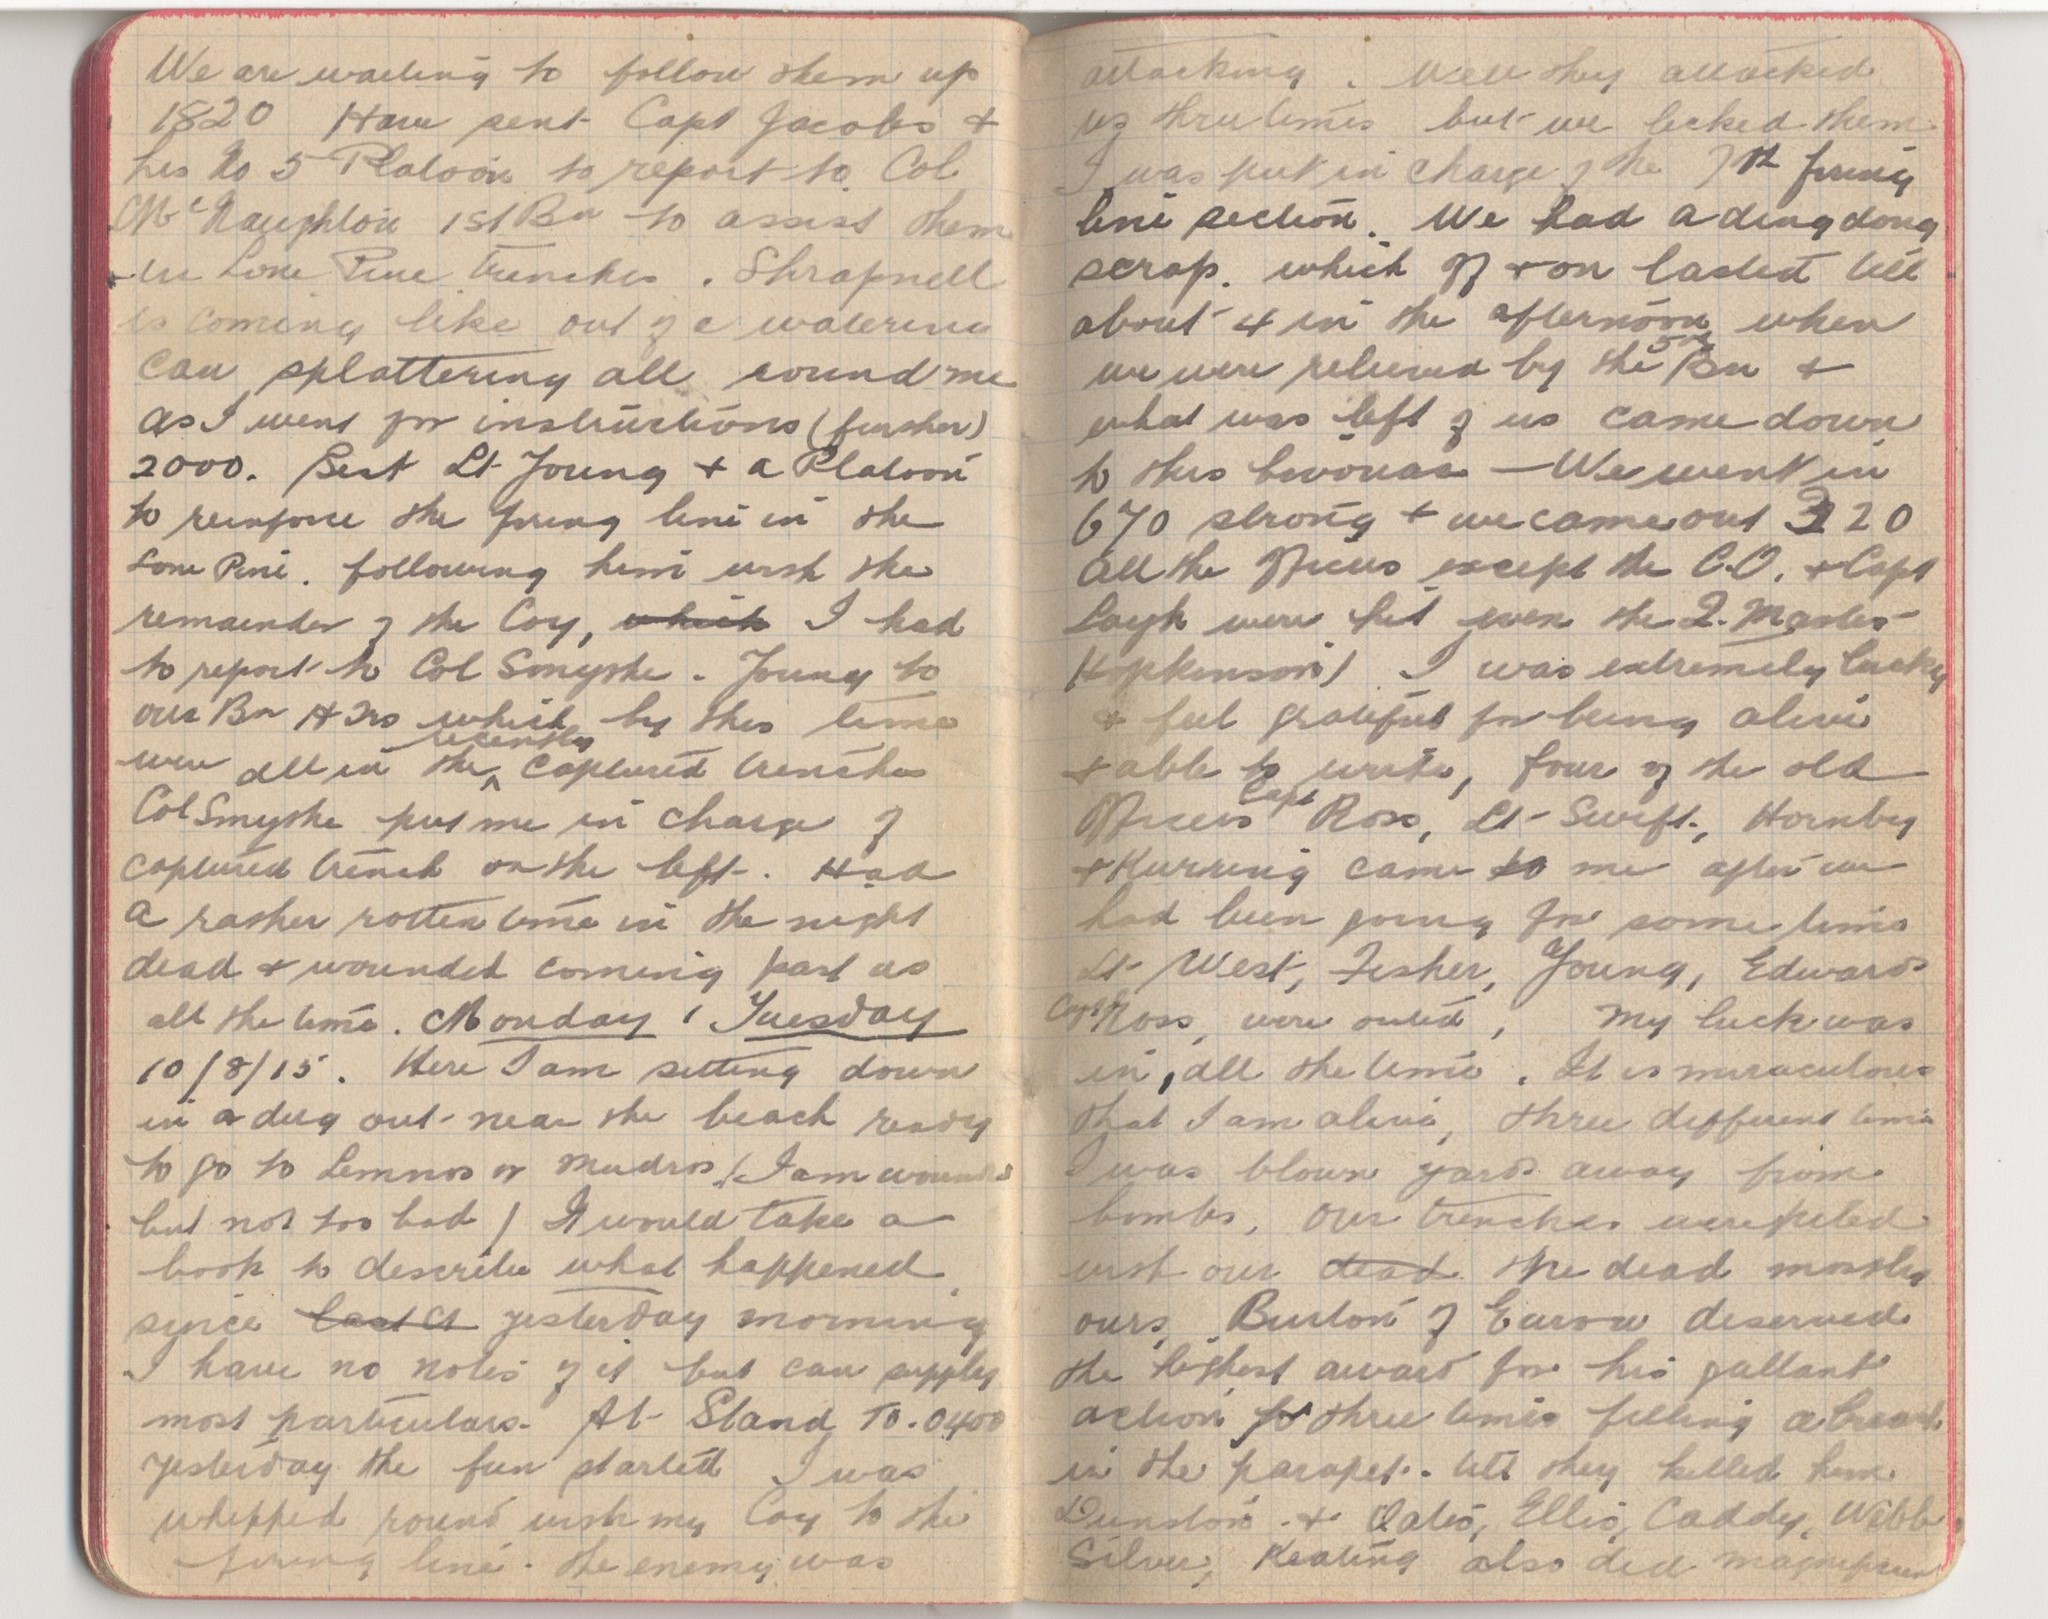 We are waiting to follow them up
1820 Have sent Capt Jacobs +
his No 5 Platoon to report to Col
McNaughton 1st Bn to assist them
in Lone Pine trenches. Shrapnell
is coming like out of a watering
can splattering all round me
as I went for instructions (further)
2000. Sent Lt Young + a Platoon
to reinforce the firing line in the
Lone Pine. following him with the
remainder of the Coy, which I had
to report to Col Smythe. Young to
our Bn HQrs which by this time
were all in the recently captured trenches
Col Smythe put me in charge of
captured trench on the left. Had
a rather rotten time in the night
dead + wounded coming past us
all the time. Monday, Tuesday
10/8/15. Here I am sitting down
in a dug out near the beach ready
to go to Lemnos or Mudros (I am wounded
but not too bad) It would take a
book to describe what happened
since last at yesterday morning
I have no notes of it but can supply
most particulars. At Stand To. 0400
yesterday the fun started I was
whipped round with my Coy to the
firing line. the enemy was
attacking. Well they attacked
us three times but we licked them
I was put in charge of the 7th firing
line section. We had a ding dong
scrap. which off + on lasted till
about 4 in the afternoon when
we were relieved by the 5th Bn +
what was left of us came down
to this bivouac — We went in
670 strong + we came out 320
all the officers except the C.O. + Capt
Layh were hit even the Q. Master
Hopkinson) I was extremely lucky
+ feel grateful for being alive
+ able to write, four of the old
officers Capt Ross, Lt Swift, Hornby
+ Kurring came to me after we
had been going for some time
Lt West, Fisher, Young, Edwards
Capt Ross, were outed, My luck was
in, all the time. It is miraculous
that I am alive, three different times
I was blown yards away from
bombs, our trenches were filled
with our dead the dead mostly
ours. Burton of Euroa deserved
the highest award for his gallant
action for three times filling a breach
in the parapet. till they killed him
Dunstan + Oates, Ellis, Caddy, Webb
Silver, Keating also did magnificent